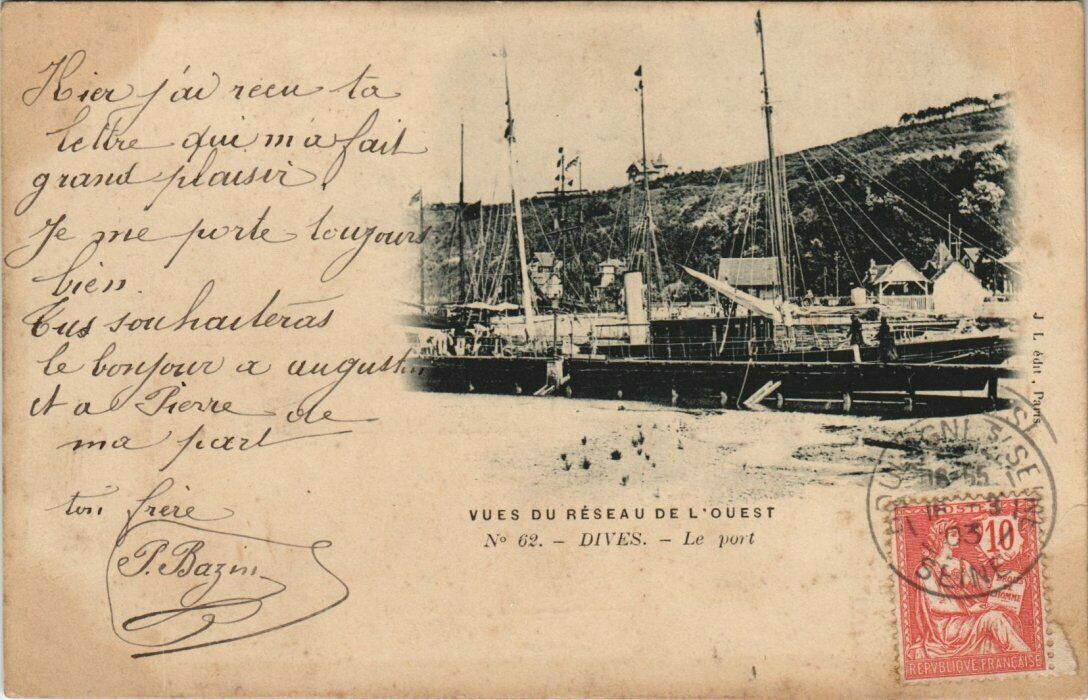 Hier j'ai recu ta
lettre qui m'a fait
grand plaisir.
Je me porte toujours
bien.
Tu souhaiteras
le bonjour a august
et a Pierre de
ma part
ton frère
P. Bazin
VUES DU RÉSEAU DE L'OUEST
Nº 62. - DIVES. - Le port
J. L. édit, Paris
S/SEINE
03
SEINE
POSTES
10
DROITS
HOMME
REPVBLIQVE FRANÇAISE